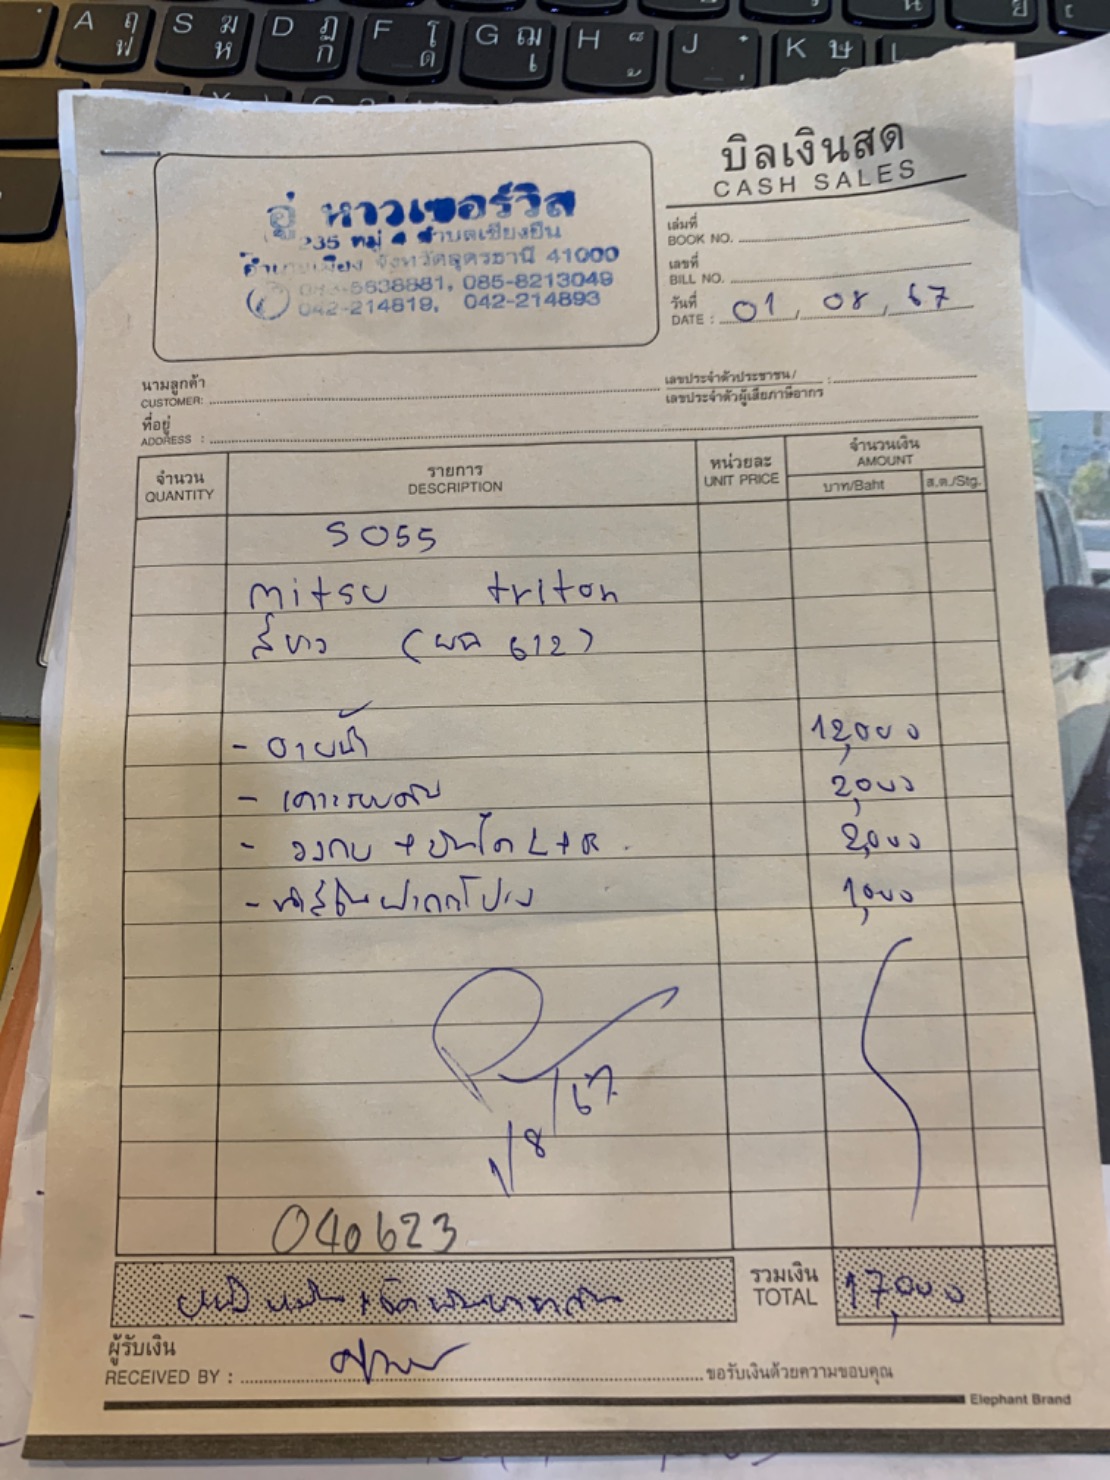 A ฤ ฟ S ฆ ห D ฏ ก F โ ด G ฌ เ H J K ษ L
บิลเงินสด
CASH SALES
อู่ หาวเซอร์วิส
35 หมู่ 4 ตำบลเชียงยืน
จังหวัดอุดรธานี 41000
5638881, 085-8213049
042-214819, 042-214893
เล่มที่
BOOK NO.
เลขที่
BILL NO.
วันที่
DATE : 01, 08, 67
นามลูกค้า
CUSTOMER:
เลขประจำตัวประชาชน/
เลขประจำตัวผู้เสียภาษีอากร :
ที่อยู่
ADDRESS :
จำนวน
QUANTITY
รายการ
DESCRIPTION
หน่วยละ
UNIT PRICE
จำนวนเงิน
AMOUNT
บาท/Baht
ส.ต./Stg.
5055
mitsu triton
สีขาว ( 612)
- 12,000
- เคาะรอบคัน 2,000
- + บันได L+R. 2,000
- ฝากระโปรง 1,000
1/8/67
040623
รวมเงิน
TOTAL 17,000
ผู้รับเงิน
RECEIVED BY :
ขอรับเงินด้วยความขอบคุณ
Elephant Brand